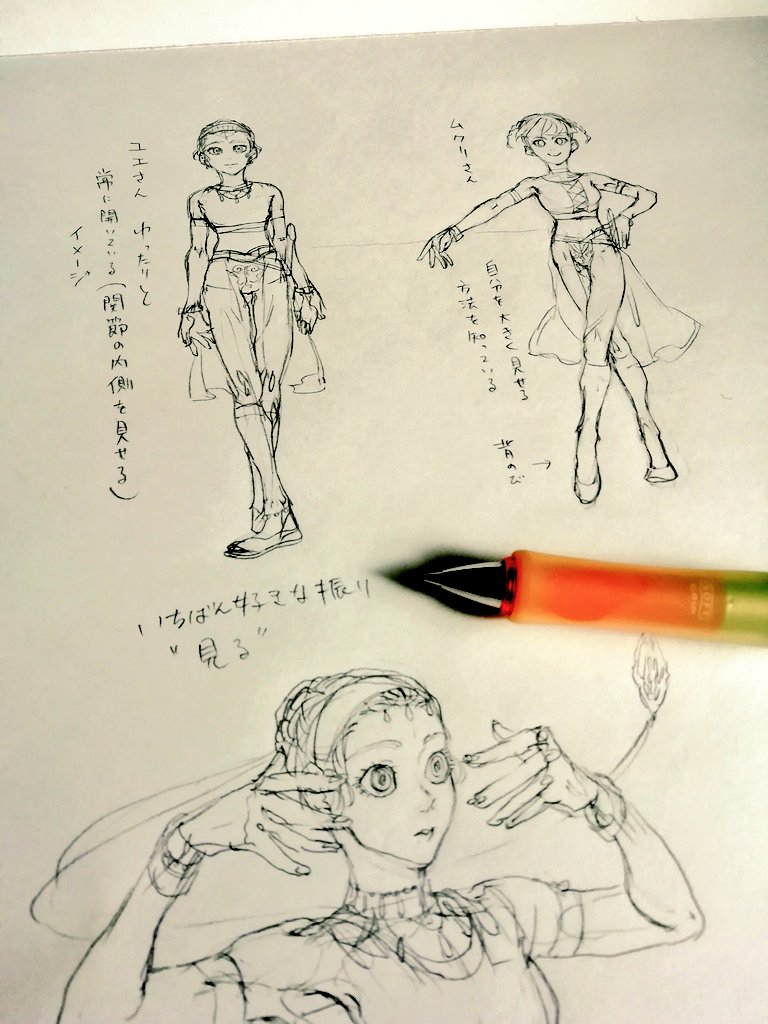 ムクリさん
自分を大きく見せる
方法を知っている
背のび
ユエさん ゆったりと
常に開いている(関節の内側を見せる)
イメージ
いちばん好きな振り
"見る"